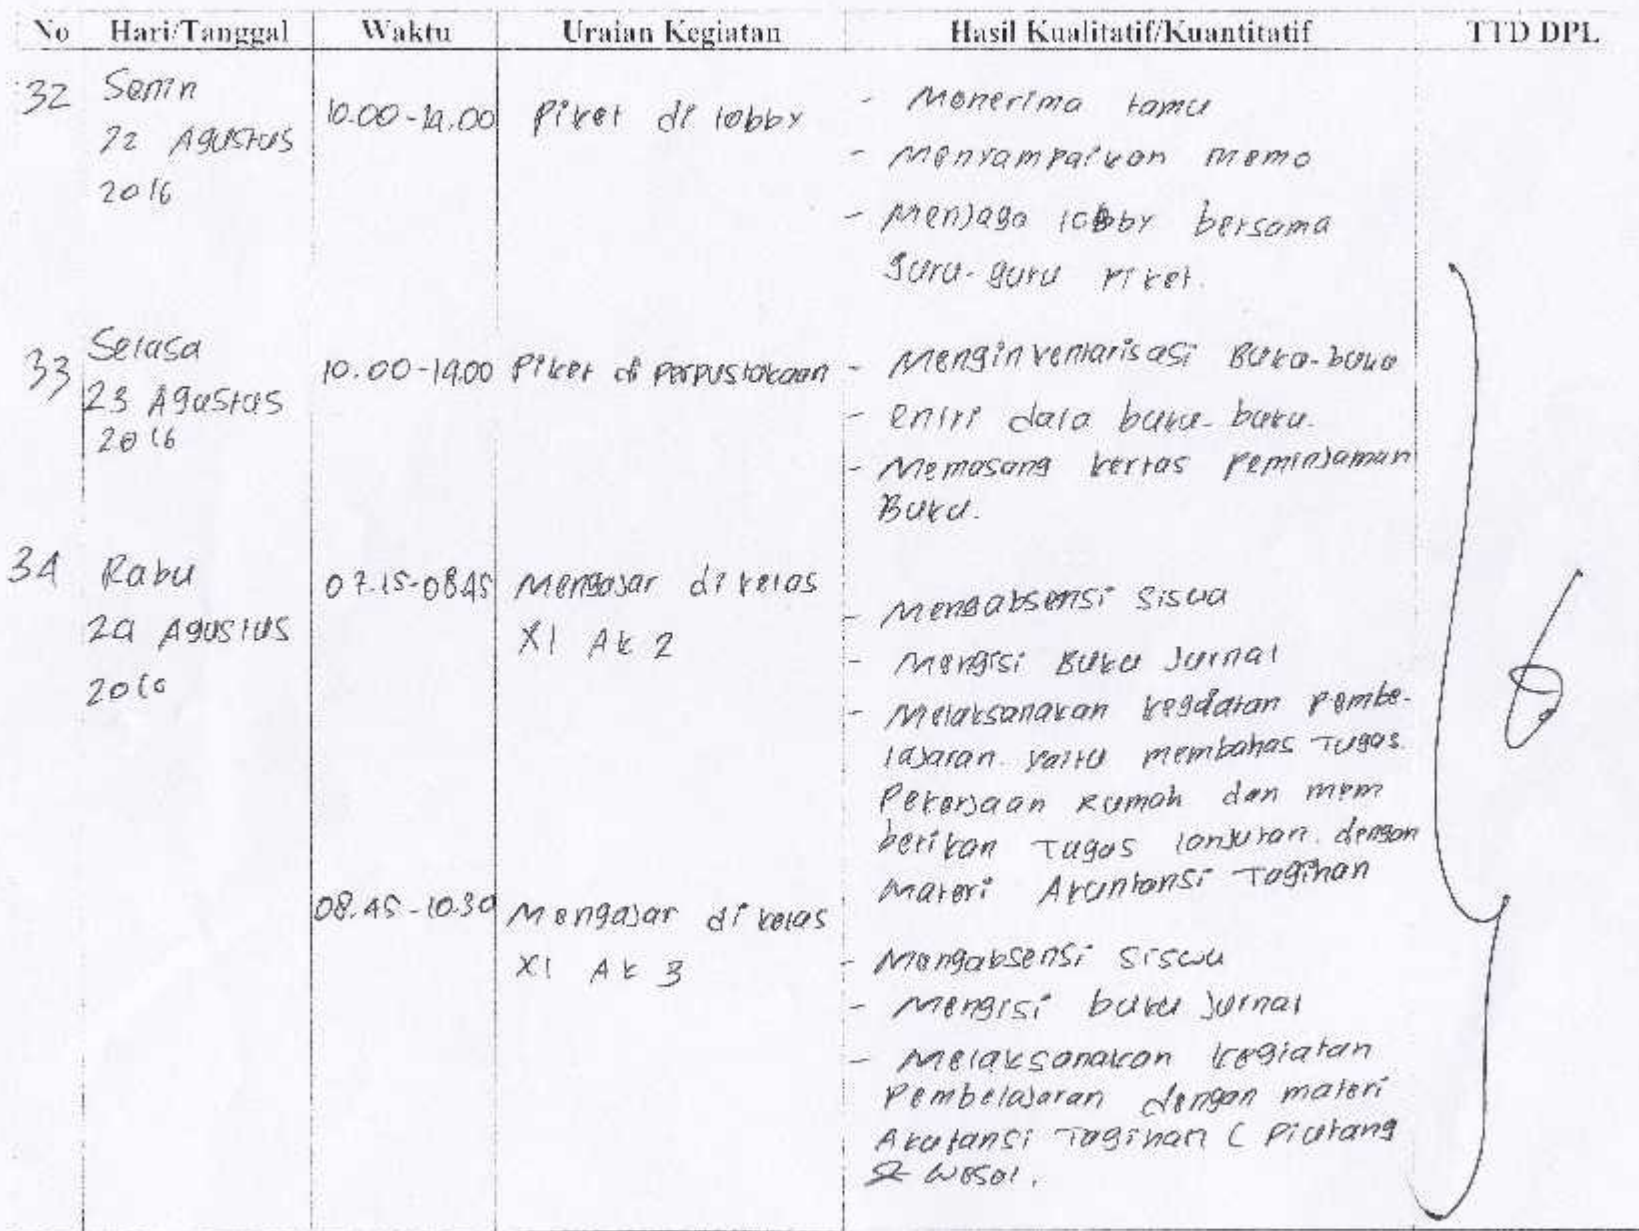 No Hari/Tanggal Waktu Uraian Kegiatan Hasil Kualitatif/Kuantitatif TTD DPL
32 Senin 22 Agustus 2016
10.00-14.00
Piket di lobby
- Menerima tamu
- Menyampaikan memo
- Menjaga lobby bersama
guru-guru piket.
33 Selasa 23 Agustus 2016
10.00-14.00
Piket di perpustakaan
- Menginventarisasi Buku-buku
- entri data buku-buku.
- Memasang kertas peminjaman
Buku.
34 Rabu 24 Agustus 2016
07.15-08.45
Mengajar di kelas
XI Ak 2
- Mengabsensi siswa
- Mengisi Buku Jurnal
- Melaksanakan kegiatan pembe-
lajaran yaitu membahas Tugas
Pekerjaan Rumah dan mem
berikan Tugas lanjutan dengan
Materi Akuntansi Tagihan
08.45-10.30
Mengajar di kelas
XI Ak 3
- Mengabsensi siswa
- Mengisi buku jurnal
- Melaksanakan kegiatan
Pembelajaran dengan materi
Akutansi Tagihan ( Piutang
& Wesel.